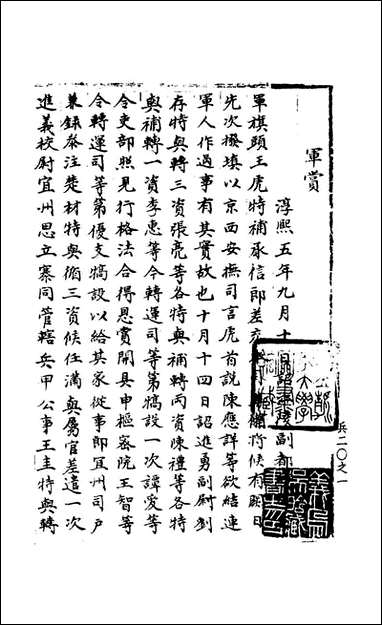 軍賞
淳熙五年九月十
軍旗頭王虎特補承信郎差充
將候有闕日
先次撥填以京西安撫司言虎首說陳應詳等欲結連
軍人作過事有其實故也十月十四日詔進勇副尉劉
存特與轉三資張亮等各特與補轉兩資陳禮等各特
與補轉一資李惠等令轉運司等第犒設一次譚愛等
令吏部照見行格法合得恩賞開具申樞密院王智等
令轉運司等第優支犒設以給其家從事郎宜州司戶
兼錄參注楚材特與循三資候任滿與屬官差遣一次
進義校尉宜州思立寨同管轄兵甲公事王圭特與轉
兵二〇之一